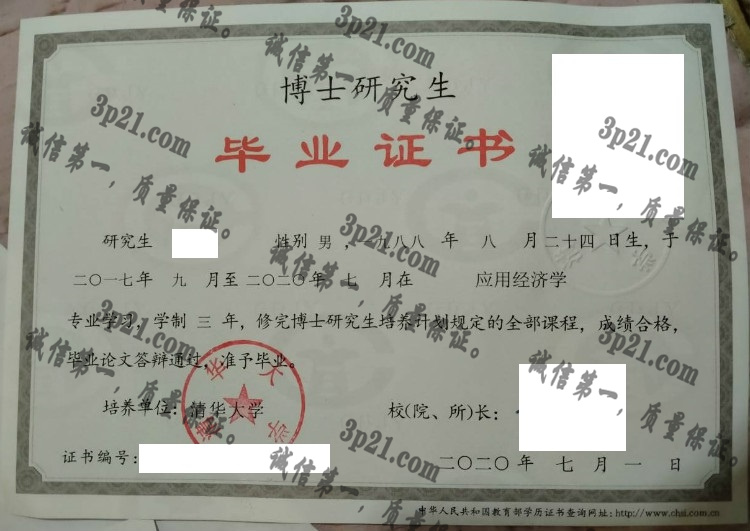 博士研究生
毕业证书
研究生 性别 男 ，一九八八 年 八 月 二十四 日生，于
二〇一七年 九 月至 二〇二〇年 七 月在 应用经济学
专业学习，学制 三 年，修完博士研究生培养计划规定的全部课程，成绩合格，
毕业论文答辩通过，准予毕业。
培养单位：清华大学 校(院、所)长：
证书编号：
二〇二〇年 七 月 一 日
中华人民共和国教育部学历证书查询网址:http://www.chsi.com.cn
3p21.com
诚信第一，质量保证。
3p21.com
诚信第一，质量保证。
3p21.com
诚信第一，质量保证。
3p21.com
诚信第一，质量保证。
3p21.com
诚信第一，质量保证。
3p21.com
诚信第一，质量保证。
3p21.com
诚信第一，质量保证。
3p21.com
诚信第一，质量保证。